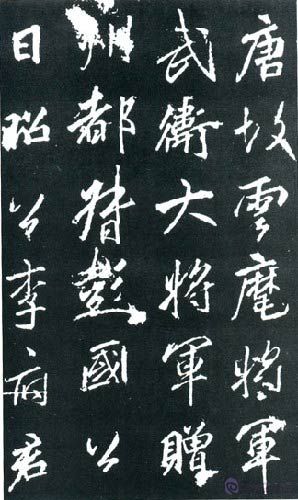 唐故雲麾將軍
武衛大將軍贈
州都督彭國公
曰昭公李府君